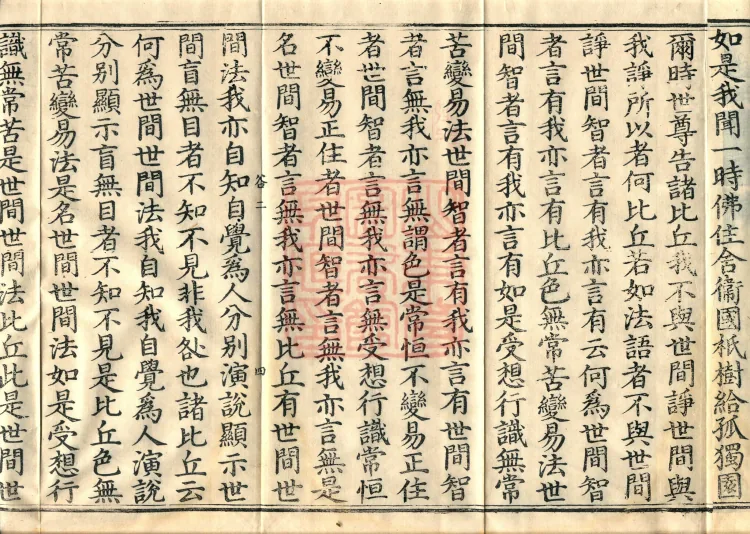 如是我聞一時佛住舍衛國祇樹給孤獨園
爾時世尊告諸比丘我不與世間諍世間與
我諍所以者何比丘若如法語者不與世間
諍世間智者言有我亦言有云何為世間智
者言有我亦言有比丘色無常苦變易法世
間智者言有我亦言有如是受想行識無常
苦變易法世間智者言有我亦言有世間智
者言無我亦言無謂色是常恒不變易正住
者世間智者言無我亦言無受想行識常恒
不變易正住者世間智者言無我亦言無是
名世間智者言無我亦言無比丘有世間世
間法我亦自知自覺為人分別演說顯示世
間盲無目者不知不見非我咎也諸比丘云
何為世間世間法我自知我自覺為人演說
分別顯示盲無目者不知不見是比丘色無
常苦變易法是名世間世間法如是受想行
識無常苦是世間世間法比丘此是世間世
四